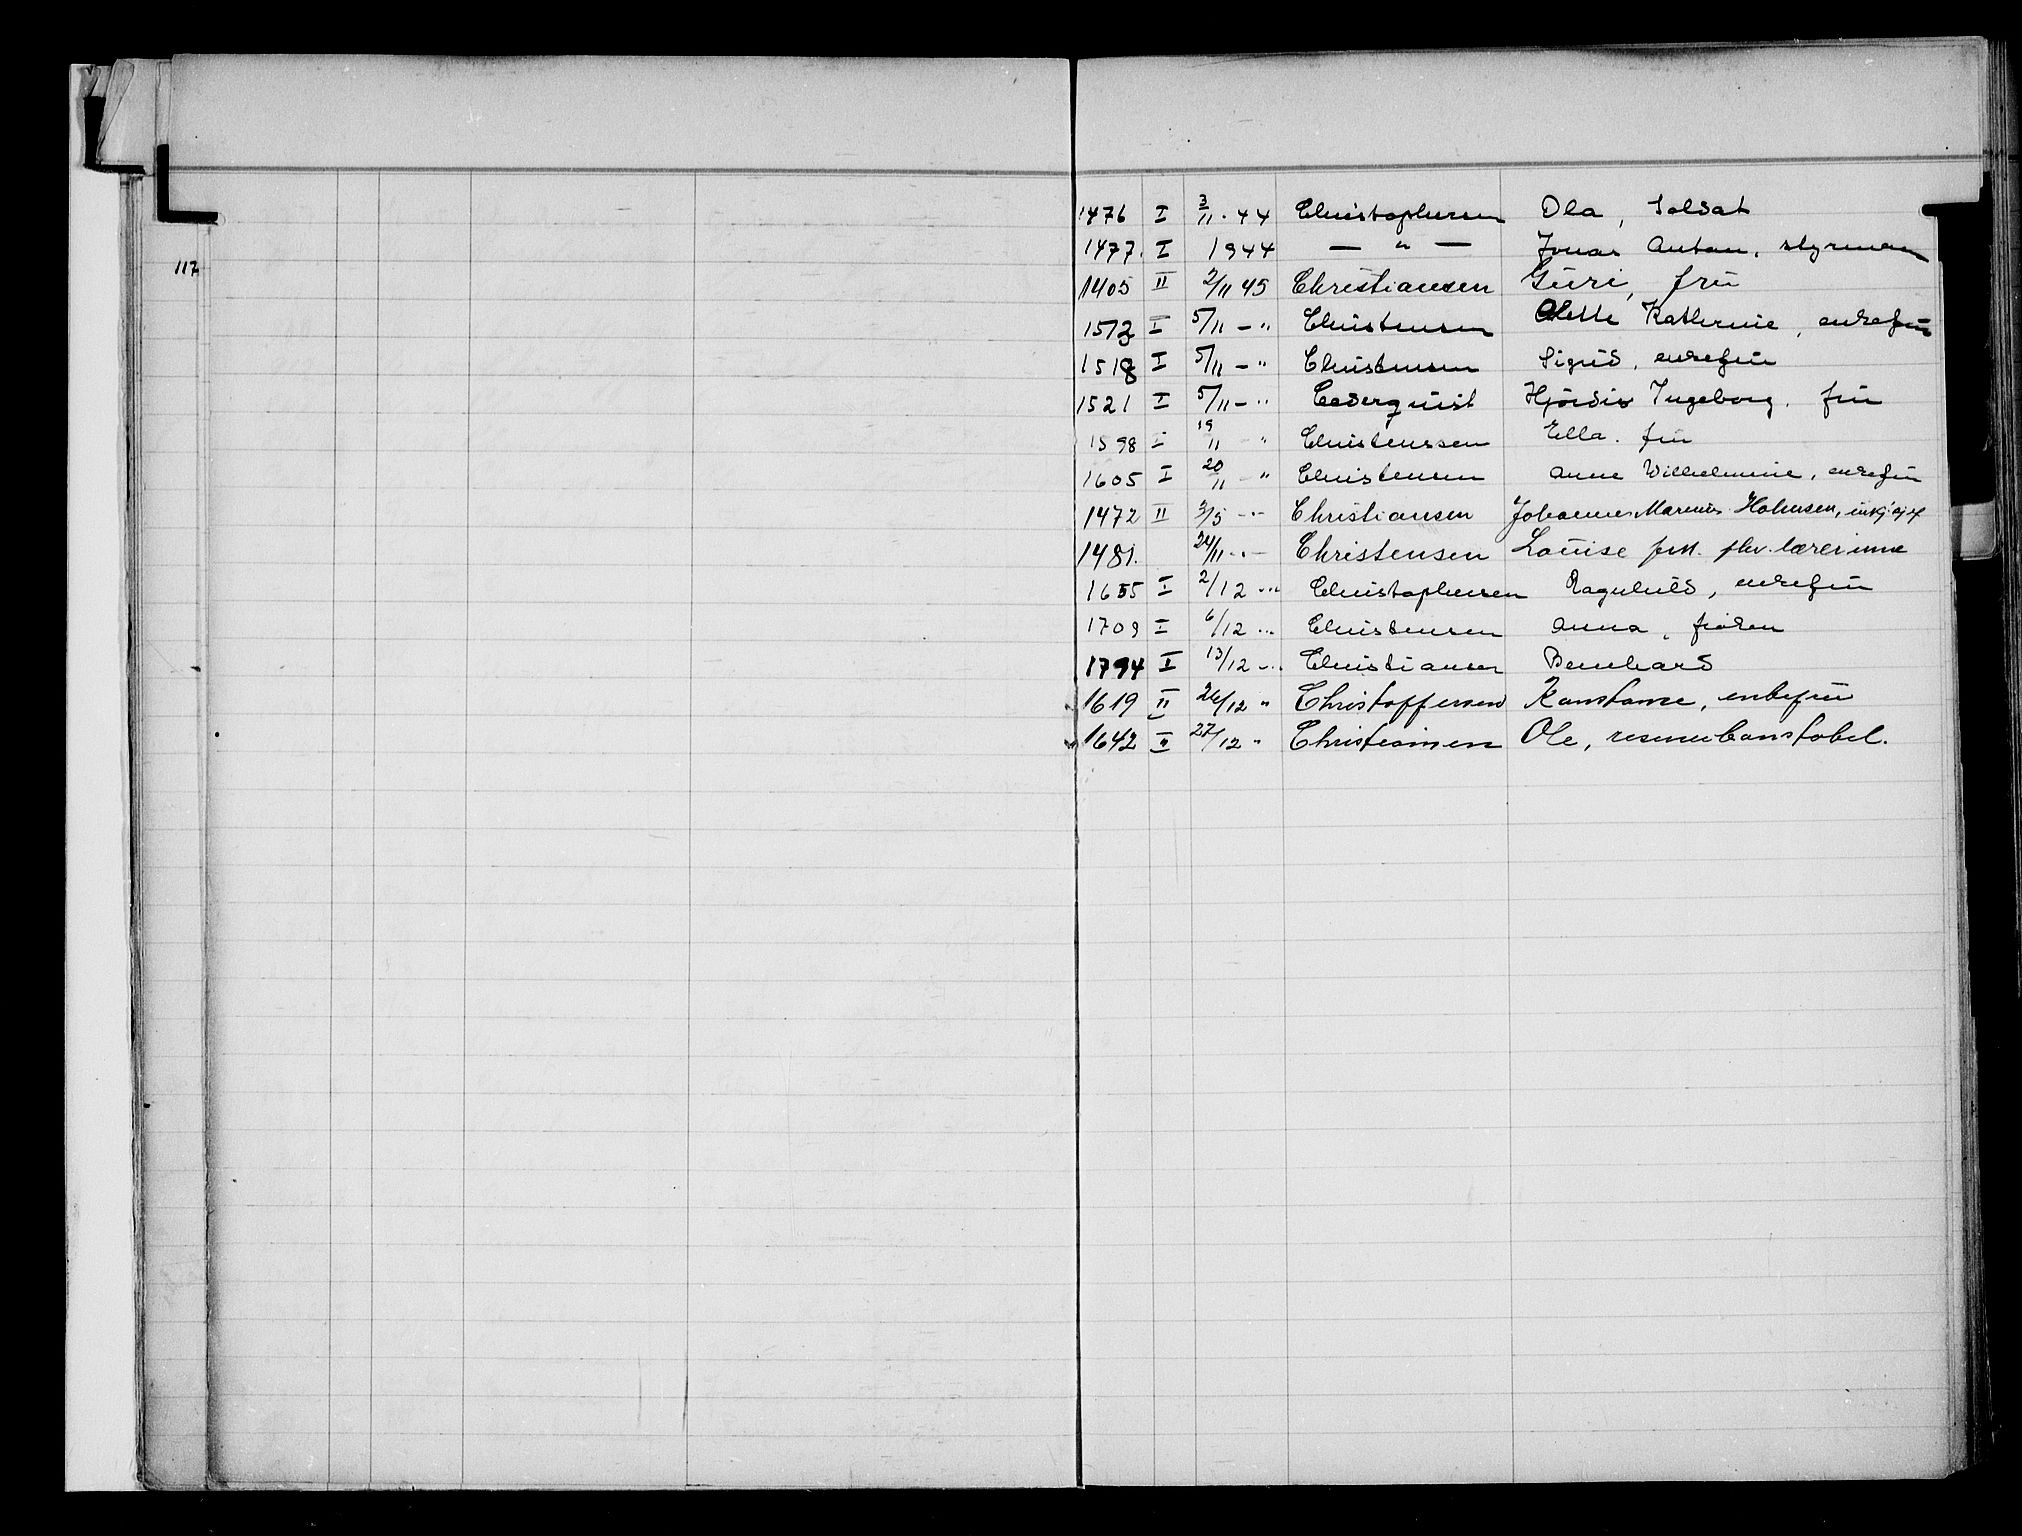 117
1476 I 3/11 · 44 Christophersen Ola, Soldat
1477. I 1944 — " — Jonas Anton, styrman
1405 II 2/11 45 Christiansen Guri, fru
1512 I 5/11 — " Christensen Olette Katherine, enkefru
1518 I 5/11 — " Christensen Sigrid, enkefru
1521 I 5/11 — " Cederquist Hjørdis Ingeborg. fru
1598 I 19/11 — " Christenssen Ella. fru
1605 I 20/11 — " Christensen Anne Wilhelmine, enkefru
1472 II 3/5 — " — Christiansen Johannes Marenius Holmsen,
1481. 24/11 — " — Christensen Louise frk. fhv. lærerinne
1655 I 2/12 — " Christophersen Ragnhild, enkefru
1709 I 6/12 — " Christensen Anna, frøken
1794 I 13/12 — " Christiansen Bernhard
1619 II 26/12 " Christoffersen Konstanse, enkefru
1642 II 27/12 " Christiansen Ole, reservekonstabel.